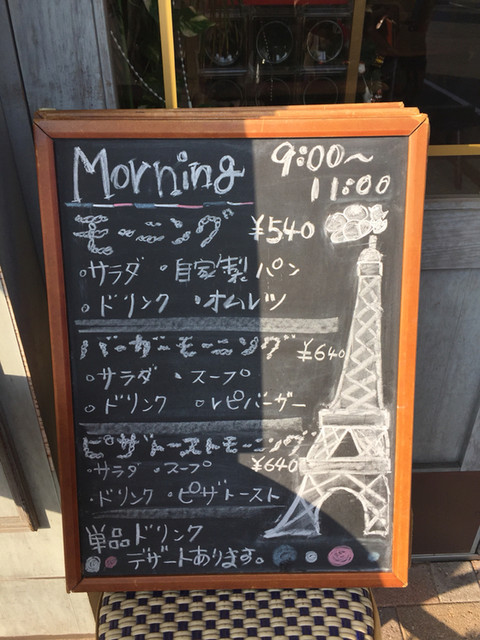 Morning 9:00〜
11:00
モーニング ¥540
・サラダ ・自家製パン
・ドリンク ・オムレツ
バーガーモーニング ¥640
・サラダ ・スープ
・ドリンク ・レピバーガー
ピザトーストモーニング
¥640
・サラダ ・スープ
・ドリンク ・ピザトースト
単品ドリンク
デザートあります。